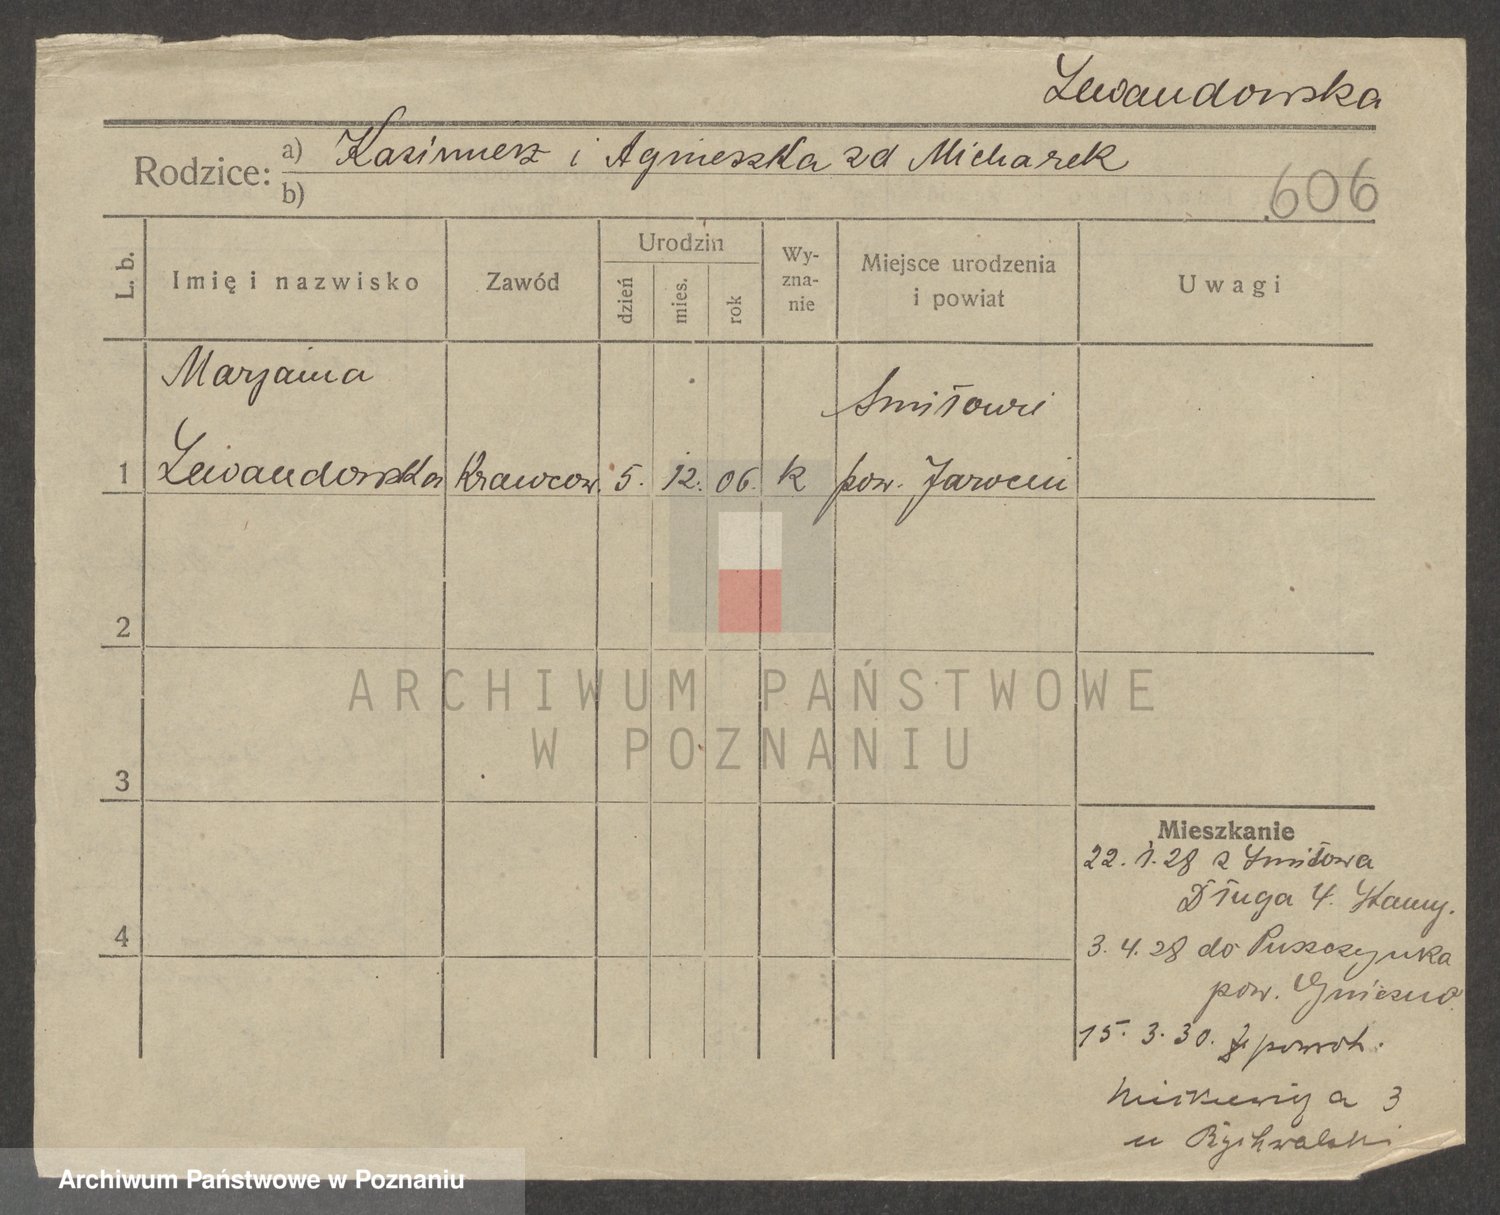 Lewandowska
Rodzice: a) Kazimierz i Agnieszka zd Micharek
b)
606
L. b.
Imię i nazwisko
Zawód
Urodzin
dzień
mies.
rok
Wy-
zna-
nie
Miejsce urodzenia
i powiat
Uwagi
Marjanna
Smiłowie
1 Lewandowska Krawcow. 5. 12. 06. k pow. Jarocin
2
ARCHIWUM PAŃSTWOWE
W POZNANIU
3
Mieszkanie
22. 1. 28 z Smiłowa
Długa 4.
4
3. 4. 28 do Puszczynka
pow. Gniezno
15. 3. 30. powrot.
Mickiewicza 3
u Rychwalski
Archiwum Państwowe w Poznaniu